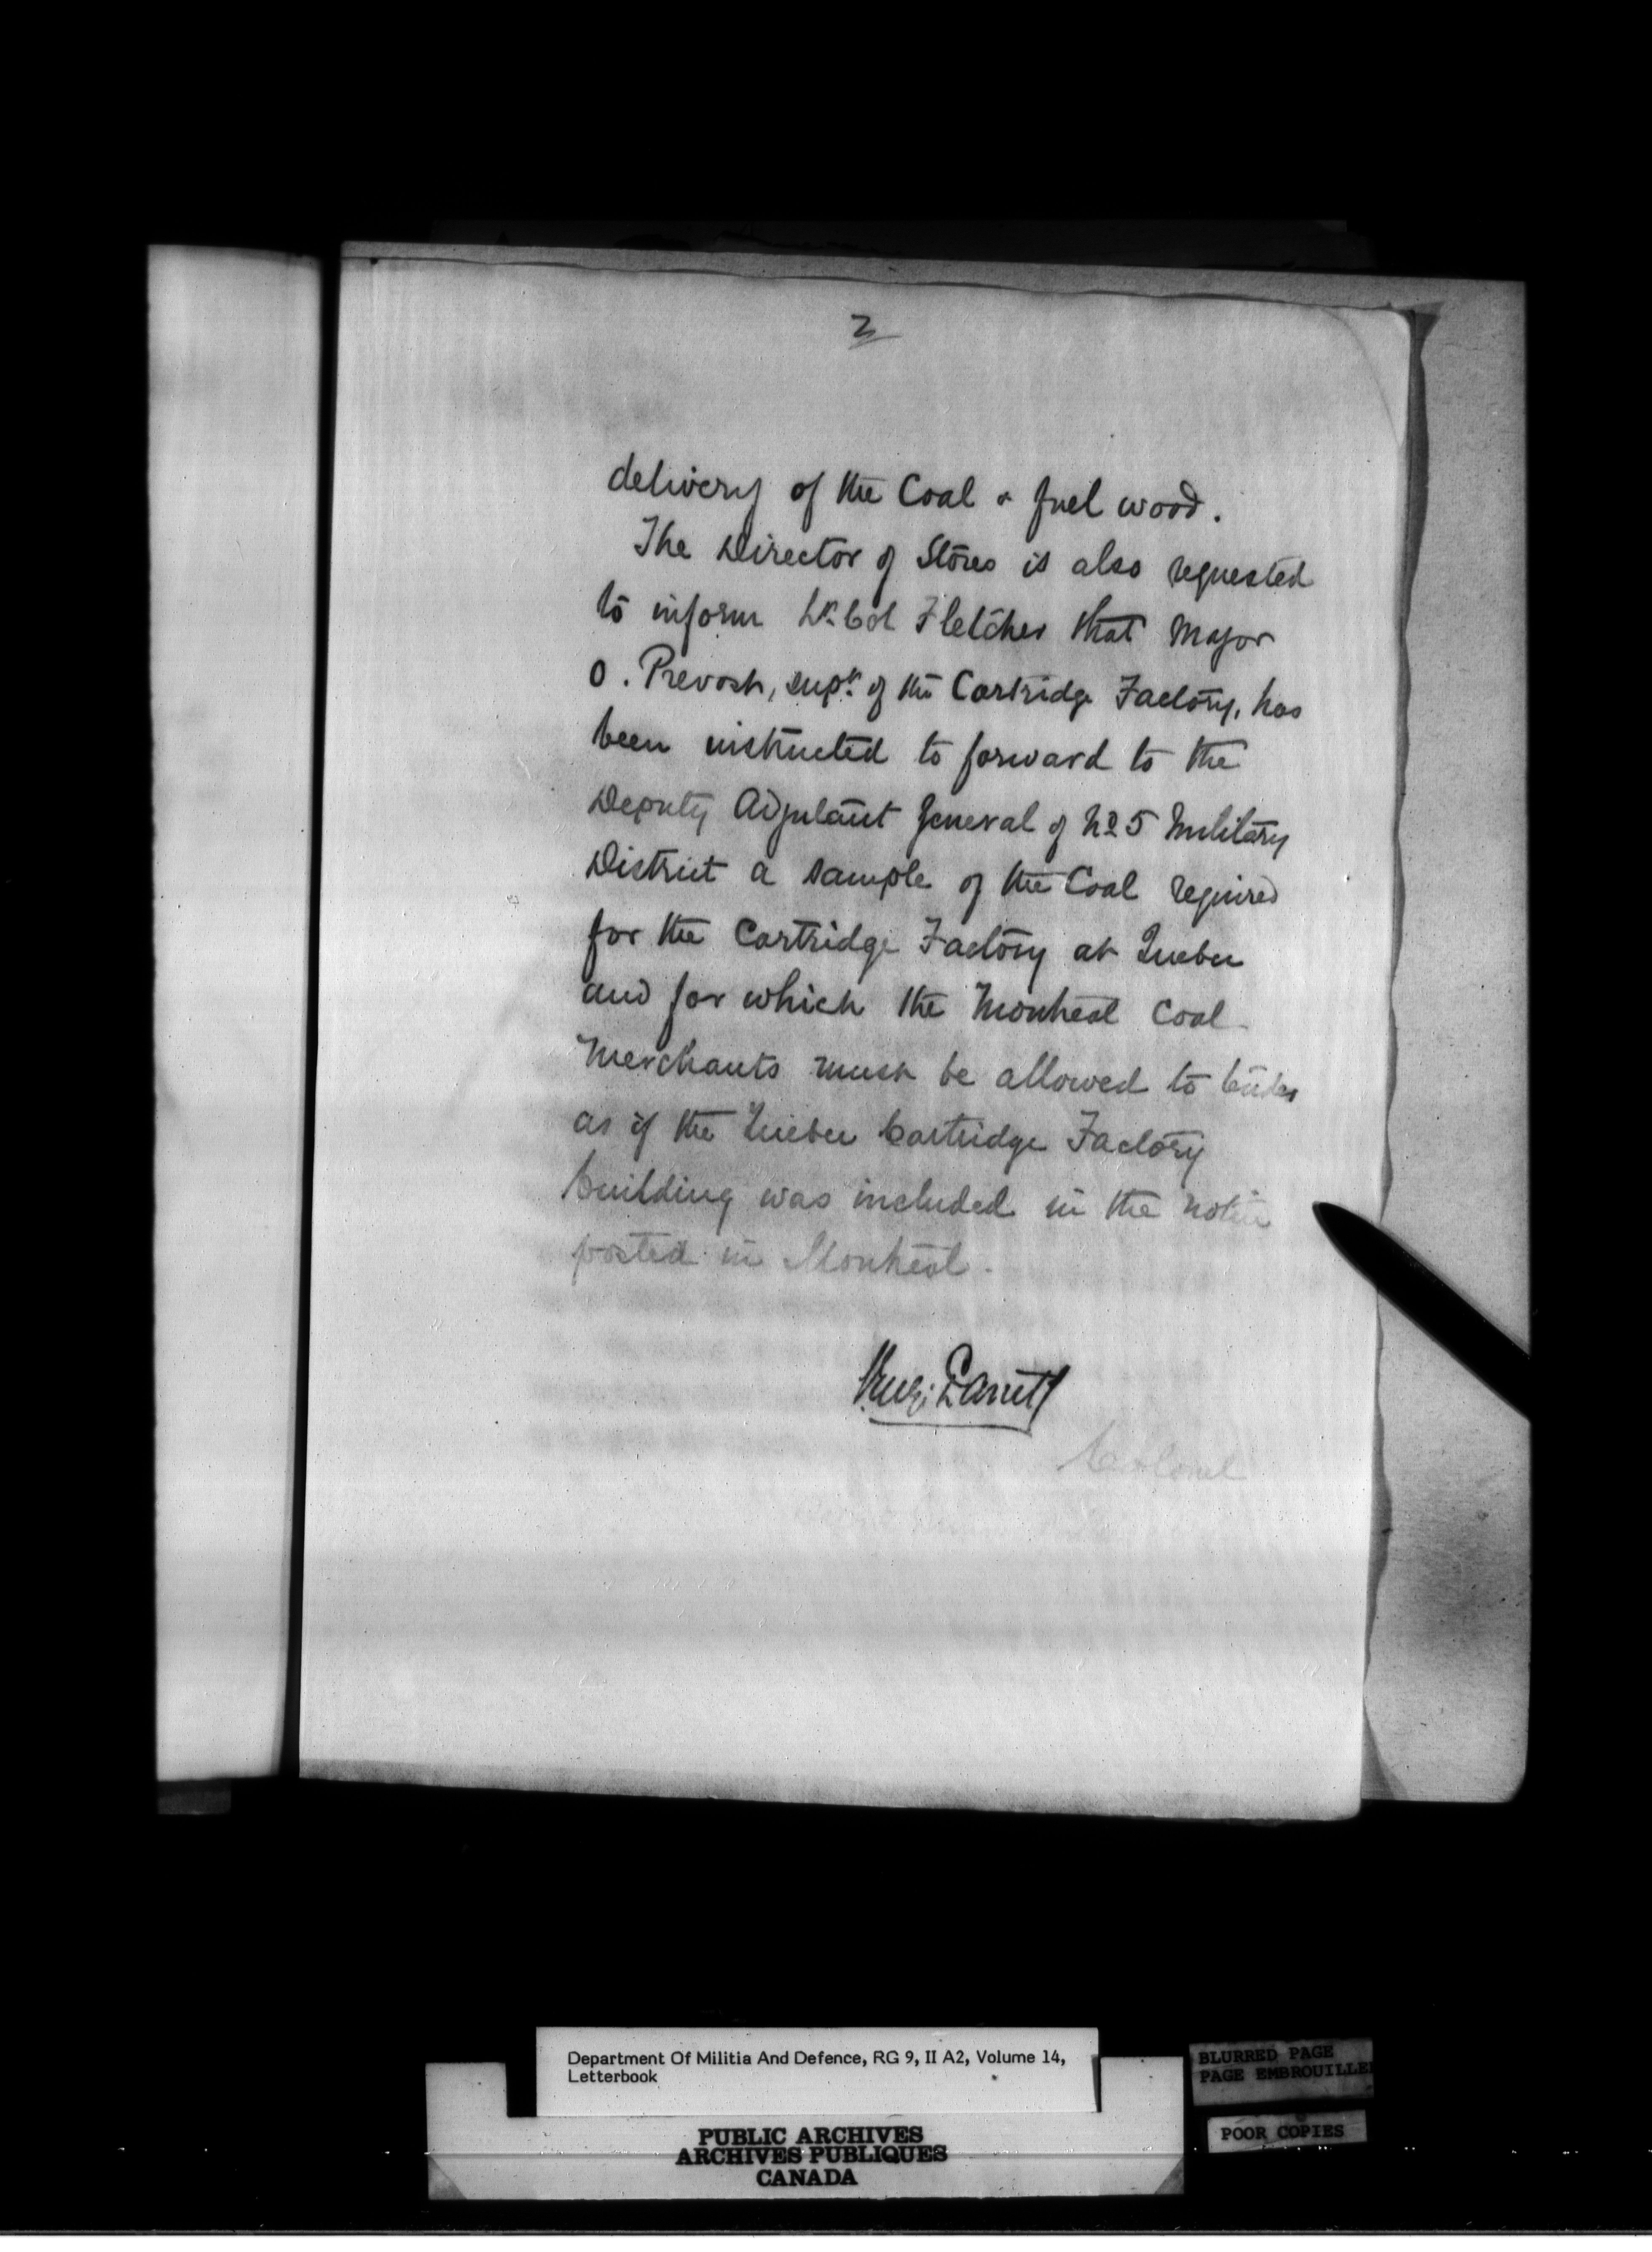 2
delivery of the Coal & fuel wood.
The Director of Stores is also requested
to inform Lt. Col Fletcher that Major
O. Prevost, supt. of the Cartridge Factory, has
been instructed to forward to the
Deputy Adjutant General of No 5 Military
District a sample of the Coal required
for the Cartridge Factory at Quebec
and for which the Montreal Coal
Merchants must be allowed to tender
as if the Quebec Cartridge Factory
building was included in the notice
posted in Montreal.
Colonel
Department Of Militia And Defence, RG 9, II A2, Volume 14,
Letterbook
PUBLIC ARCHIVES
ARCHIVES PUBLIQUES
CANADA
BLURRED PAGE
PAGE EMBROUILLEE
POOR COPIES